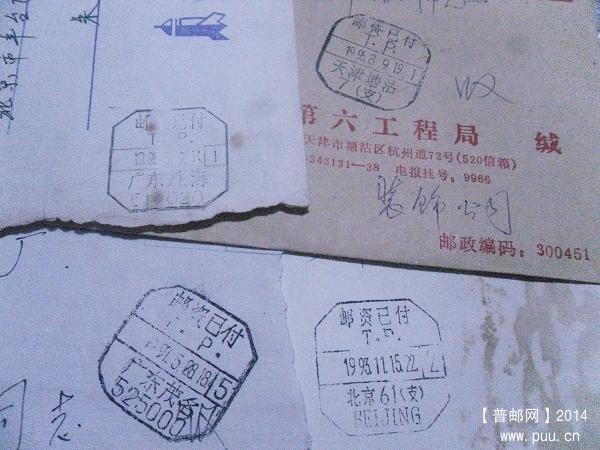 北京市丰台
朱
邮资已付
T.P.
广东珠海
邮资已付
T.P.
1998.9.19 1
天津塘沽
7(支)
收
第六工程局 缄
天津市塘沽区杭州道72号(520信箱)
343131—38 电报挂号:9966
装饰公司
邮政编码:300451
邮资已付
T.P.
5.28.18 5
广东茂名
525000
邮资已付
T.P.
1993.11.15.22 2
北京61(支)
BEIJING
志
【普邮网】2014
www.puu.cn